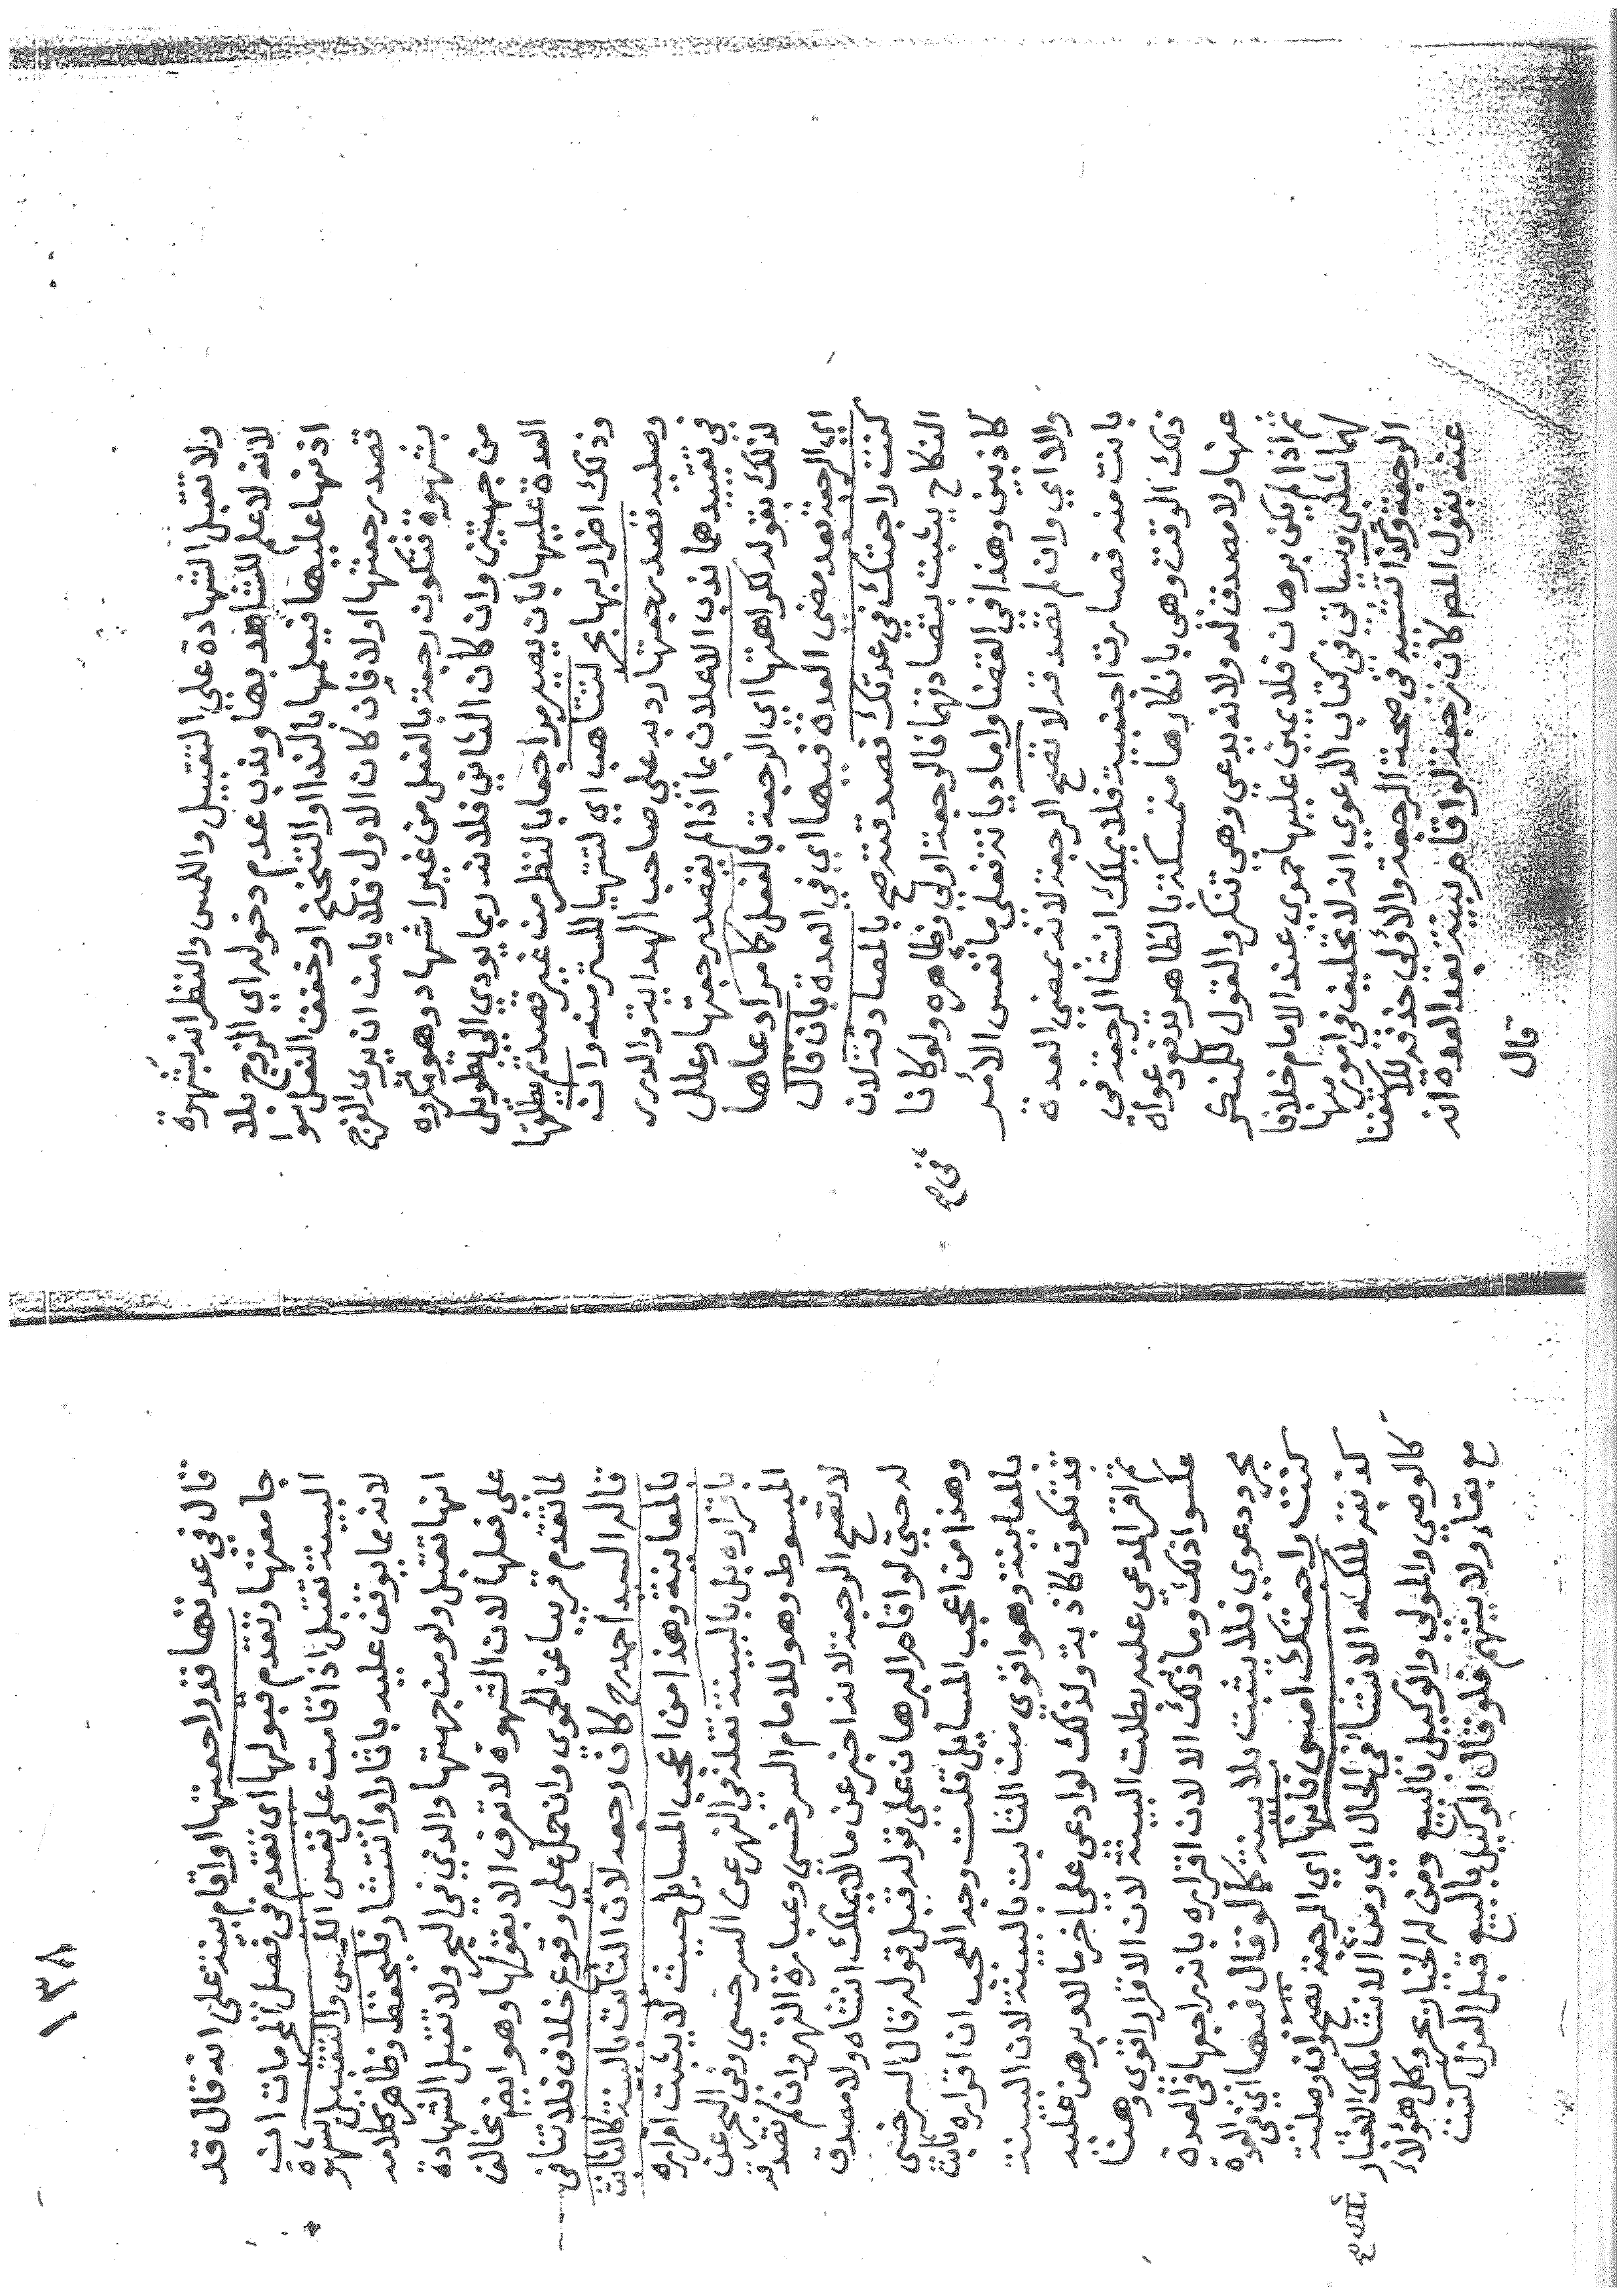 ولا تقبل الشهادة علي التقبيل واللمس والنظر انه بشهوة
لانه لا علم للشاهد بها وندب عدم دخوله اي الزوج بلا
اذنها عليها فيعلمها بالندا او التنحنح او خفق النعل سوا
قصد رجعتها او لا فان كان الاول فلا يامن ان يري الفرج
بشهوة فتكون رجعة بالفعل من غير اشهاد وهو مكروه
من جهتين وان كان الثاني فلانه ربما يودي الي تطويل
العدة عليها بان يصير مراجعا بالنظر من غير قصد ثم يطلقها
وذلك اضرار بها بحر لتتاهب اي لتتهيا للستر منه وان
وصلية قصد رجعتها رد به على صاحب الهداية والدرر
في تقييدهما ندب الاعلان بما اذا لم يقصد رجعتها وعلل
لذلك بقوله لكراهتها اي الرجعة بالفعل كما مر ادعاها
اي الرجعة بعد مضي العدة فيها اي في العدة بان قال
كنت راجعتك في عدتك فصدقته صح بالمصادقة لان
النكاح يثبت بتصادقهما فالرجعة اولي وظاهره ولو كانا
كاذبين وهذا في القضا واما ديانة فعلي ما نفس الامر
والا اي وان لم تصدقه لا تصح الرجعة لانه بمضي العدة
بانت منه فصارت اجنبية فلا يملك انشا الرجعة في
ذلك الوقت وهي بانكارها متمسكة بالظاهر تدفع دعواه
عنها ولا مصدق له ولانه يدعي وهي تنكر والقول للمنكر
ثم اذا لم يكن برهان فلا يمين عليها حموي عند الامام خلافا
لهما شلبي وسياتي في كتاب الدعوي انه لا تحليف في امور منها
الرجعة وكذا تشيد في صحة الرجعة والاولي حذفه للاكتفا
عنه بقول المص كان رجعة لو اقام ببينة بعد العدة انه
قال
١٣٨
قال في عدتها قد راجعتها او اقام بينة علي انه قال قد
جامعتها وتقدم قبولها اي تقدم في فصل المحرمات ان
البينة تقبل اذا قامت علي نفس اللمس والتقبيل بشهوة
لانه مما يوقف عليه باثار او انتشار فليحفظ وظاهر كلامه
انها تقبل ولو من جهتها والذي في البحر ولا تقبل الشهادة
علي فعلها لان الشهوة لا تعرف الا بقولها وهو ايضا يخالف
لما تقدم قريبا عن الحموي وانه حمل علي وقوع خلاف فلا تنافي
قاله السيد احمد رح كان رحمه لان الثابت بالبينة كالثابت
بالمعاينة وهذا من اعجب المسايل حيث لا يثبت اقراره
باقراره بل بالبينة نقله في النهر عن السرخسي وفي البحر عن
المبسوط وهو للامام السرخسي وعبارة النهر وان لم تصدقه
لا تصح الرجعة لانه اخبر عن ما لا يملك انشاه ولا مصدق
له حتي لو اقام البرهان علي قوله قبل قوله قال السرخسي
وهذا من اعجب المسايل قلت وجه العجب ان اقراره ثابت
بالمعاينة وهو اقوي من الثابت بالبينة لان البينة
قد تكون كاذبة ولذلك لو ادعي علي اخر مالا وبرهن عليه
ثم اقر المدعي عليه بطلت البينة لان الاقرار اقوي وهنا
عكسوا ذلك وما ذلك الا لان اقراره بانه راجعها في العدة
بمجرد دعوي فلا يثبت بلا بينة كما لو قال فيها اي في العدة
كنت راجعتك امس فانها اي الرجعة تصح وان وصلية
كذبته لملكه الانشا في الحال اي ومن الانشا ملك الاخبار
كالوصي والمولي والوكيل بالبيع ومن له الخيار بحر وكل هؤلاء
مع بقاء ولايتهم فلو قال الوكيل بالبيع قبل العزل كنت